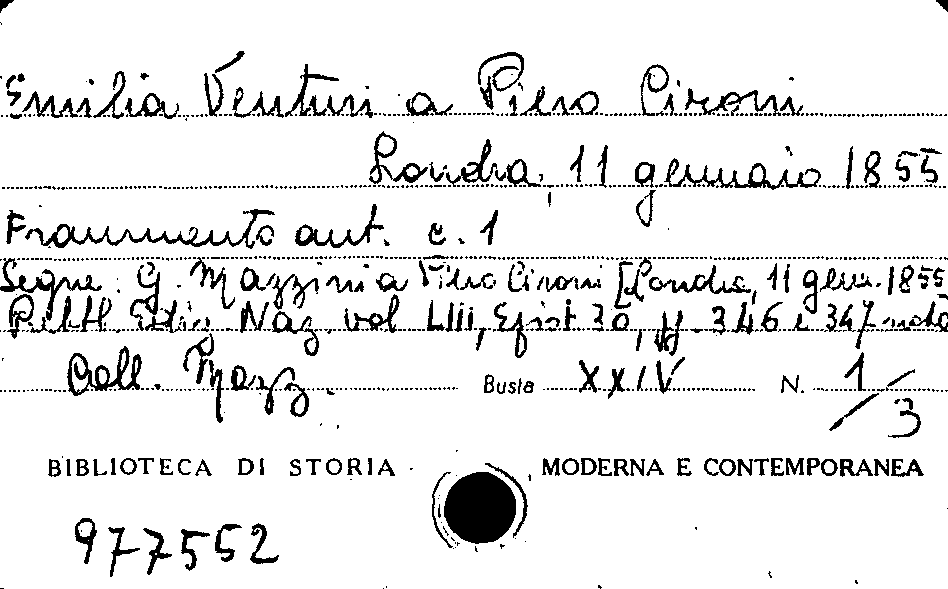 Emilia Venturi a Piero Cironi
Londra, 11 gennaio 1855
Frammento aut. c. 1
Segue. G. Mazzini a Piero Cironi [Londra, 11 genn. 1855
Pubbl. Ediz. Naz. vol LIII, Epist 30, pp. 346 e 347 nota
Coll. Mazz. Busta XXIV N. 1/3
BIBLIOTECA DI STORIA MODERNA E CONTEMPORANEA
977552